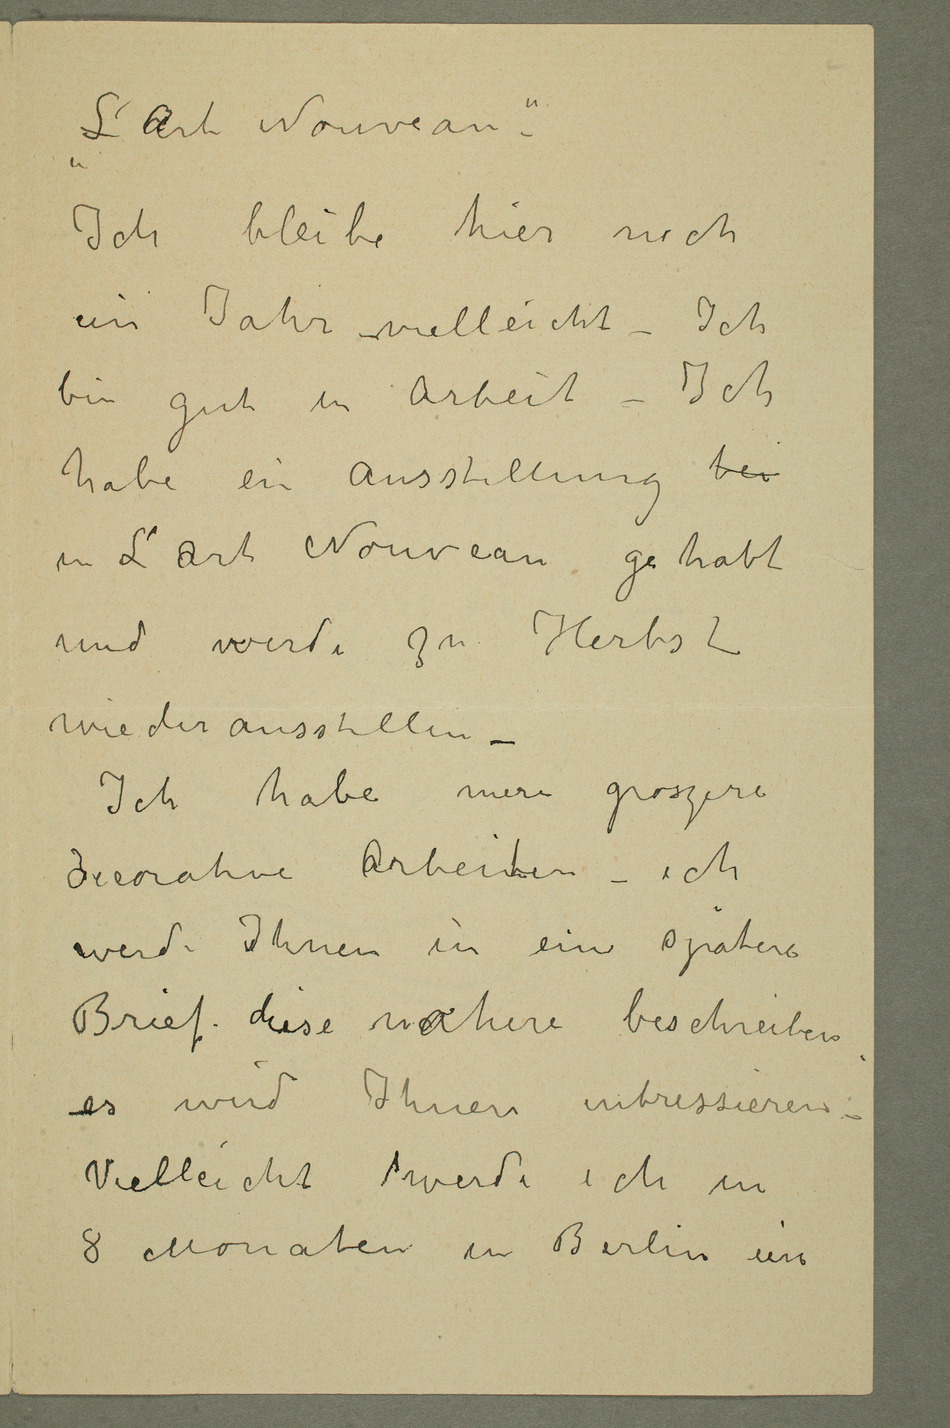 „L'Art Nouveau“.
Ich bleibe hier noch
ein Jahr – vielleicht – Ich
bin gut in Arbeit – Ich
habe ein Ausstellung bei
in L'Art Nouveau gehabt
und werde zu Herbst
wieder ausstellen –
Ich habe mere groszere
decorative Arbeiten – ich
werde Ihnen in eine spätere
Brief diese nähere beschreiben,
es wird Ihnen intressieren –
Vielleicht werde ich in
8 Monaten in Berlin ein